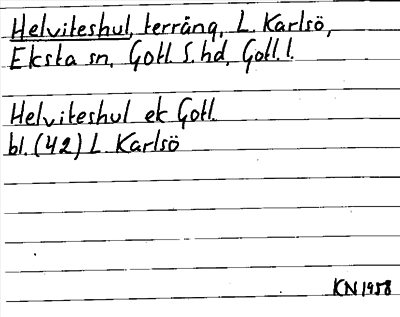 Helviteshul, terräng, L. Karlsö,
Eksta sn, Gotl. S. hd, Gotl. l.
Helviteshul ek Gotl.
bl. (42) L. Karlsö
KN 1958